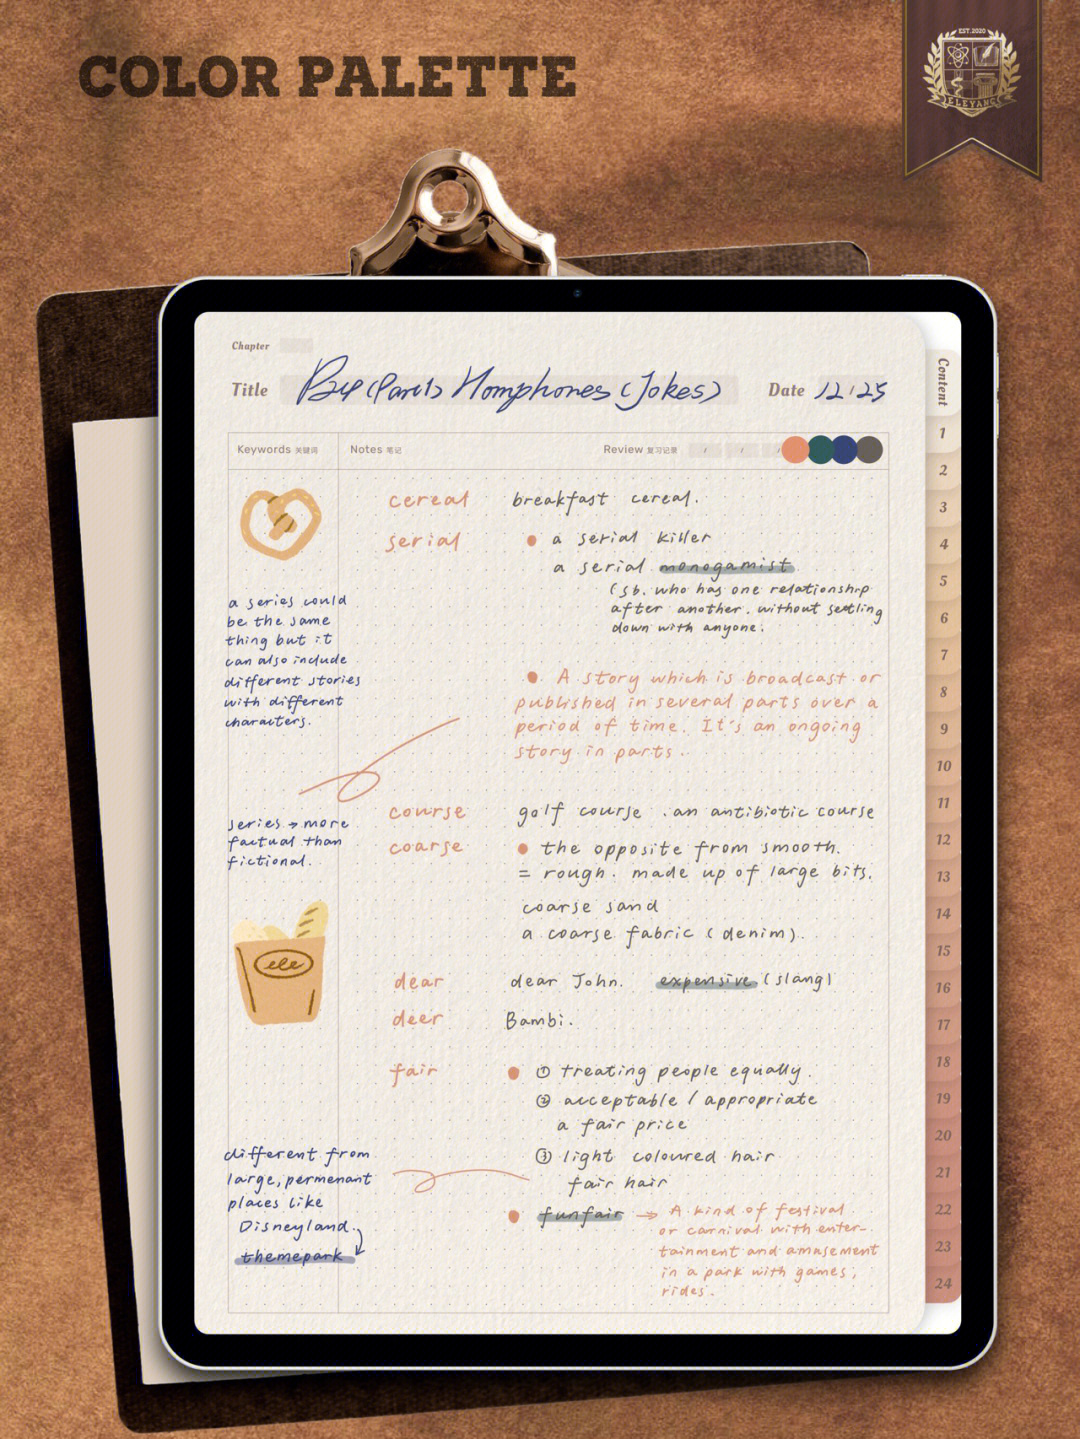 COLOR PALETTE
EST.2020
ELEYANG
Chapter
Title
(Part1) Homphones (Jokes)
Date 12/25
Content
Keywords 关键词
Notes 笔记
Review 复习记录 / / /
cereal breakfast cereal.
serial • a serial killer
a serial monogamist
(sb. who has one relationship
after another. without settling
down with anyone.
a series could
be the same
thing but it
can also include
different stories
with different
characters.
• A story which is broadcast or
published in several parts over a
period of time. It's an ongoing
story in parts.
series → more
factual than
fictional.
course golf course . an antibiotic course
coarse • the opposite from smooth.
= rough. made up of large bits.
coarse sand
a coarse fabric (denim).
ele
dear dear John. expensive (slang)
deer Bambi.
fair • ① treating people equally.
② acceptable / appropriate
a fair price
③ light coloured hair
fair hair
different from
large, permenant
places like
Disneyland.
themepark
• funfair → A kind of festival
or carnival with enter-
tainment and amusement
in a park with games,
rides.
1
2
3
4
5
6
7
8
9
10
11
12
13
14
15
16
17
18
19
20
21
22
23
24